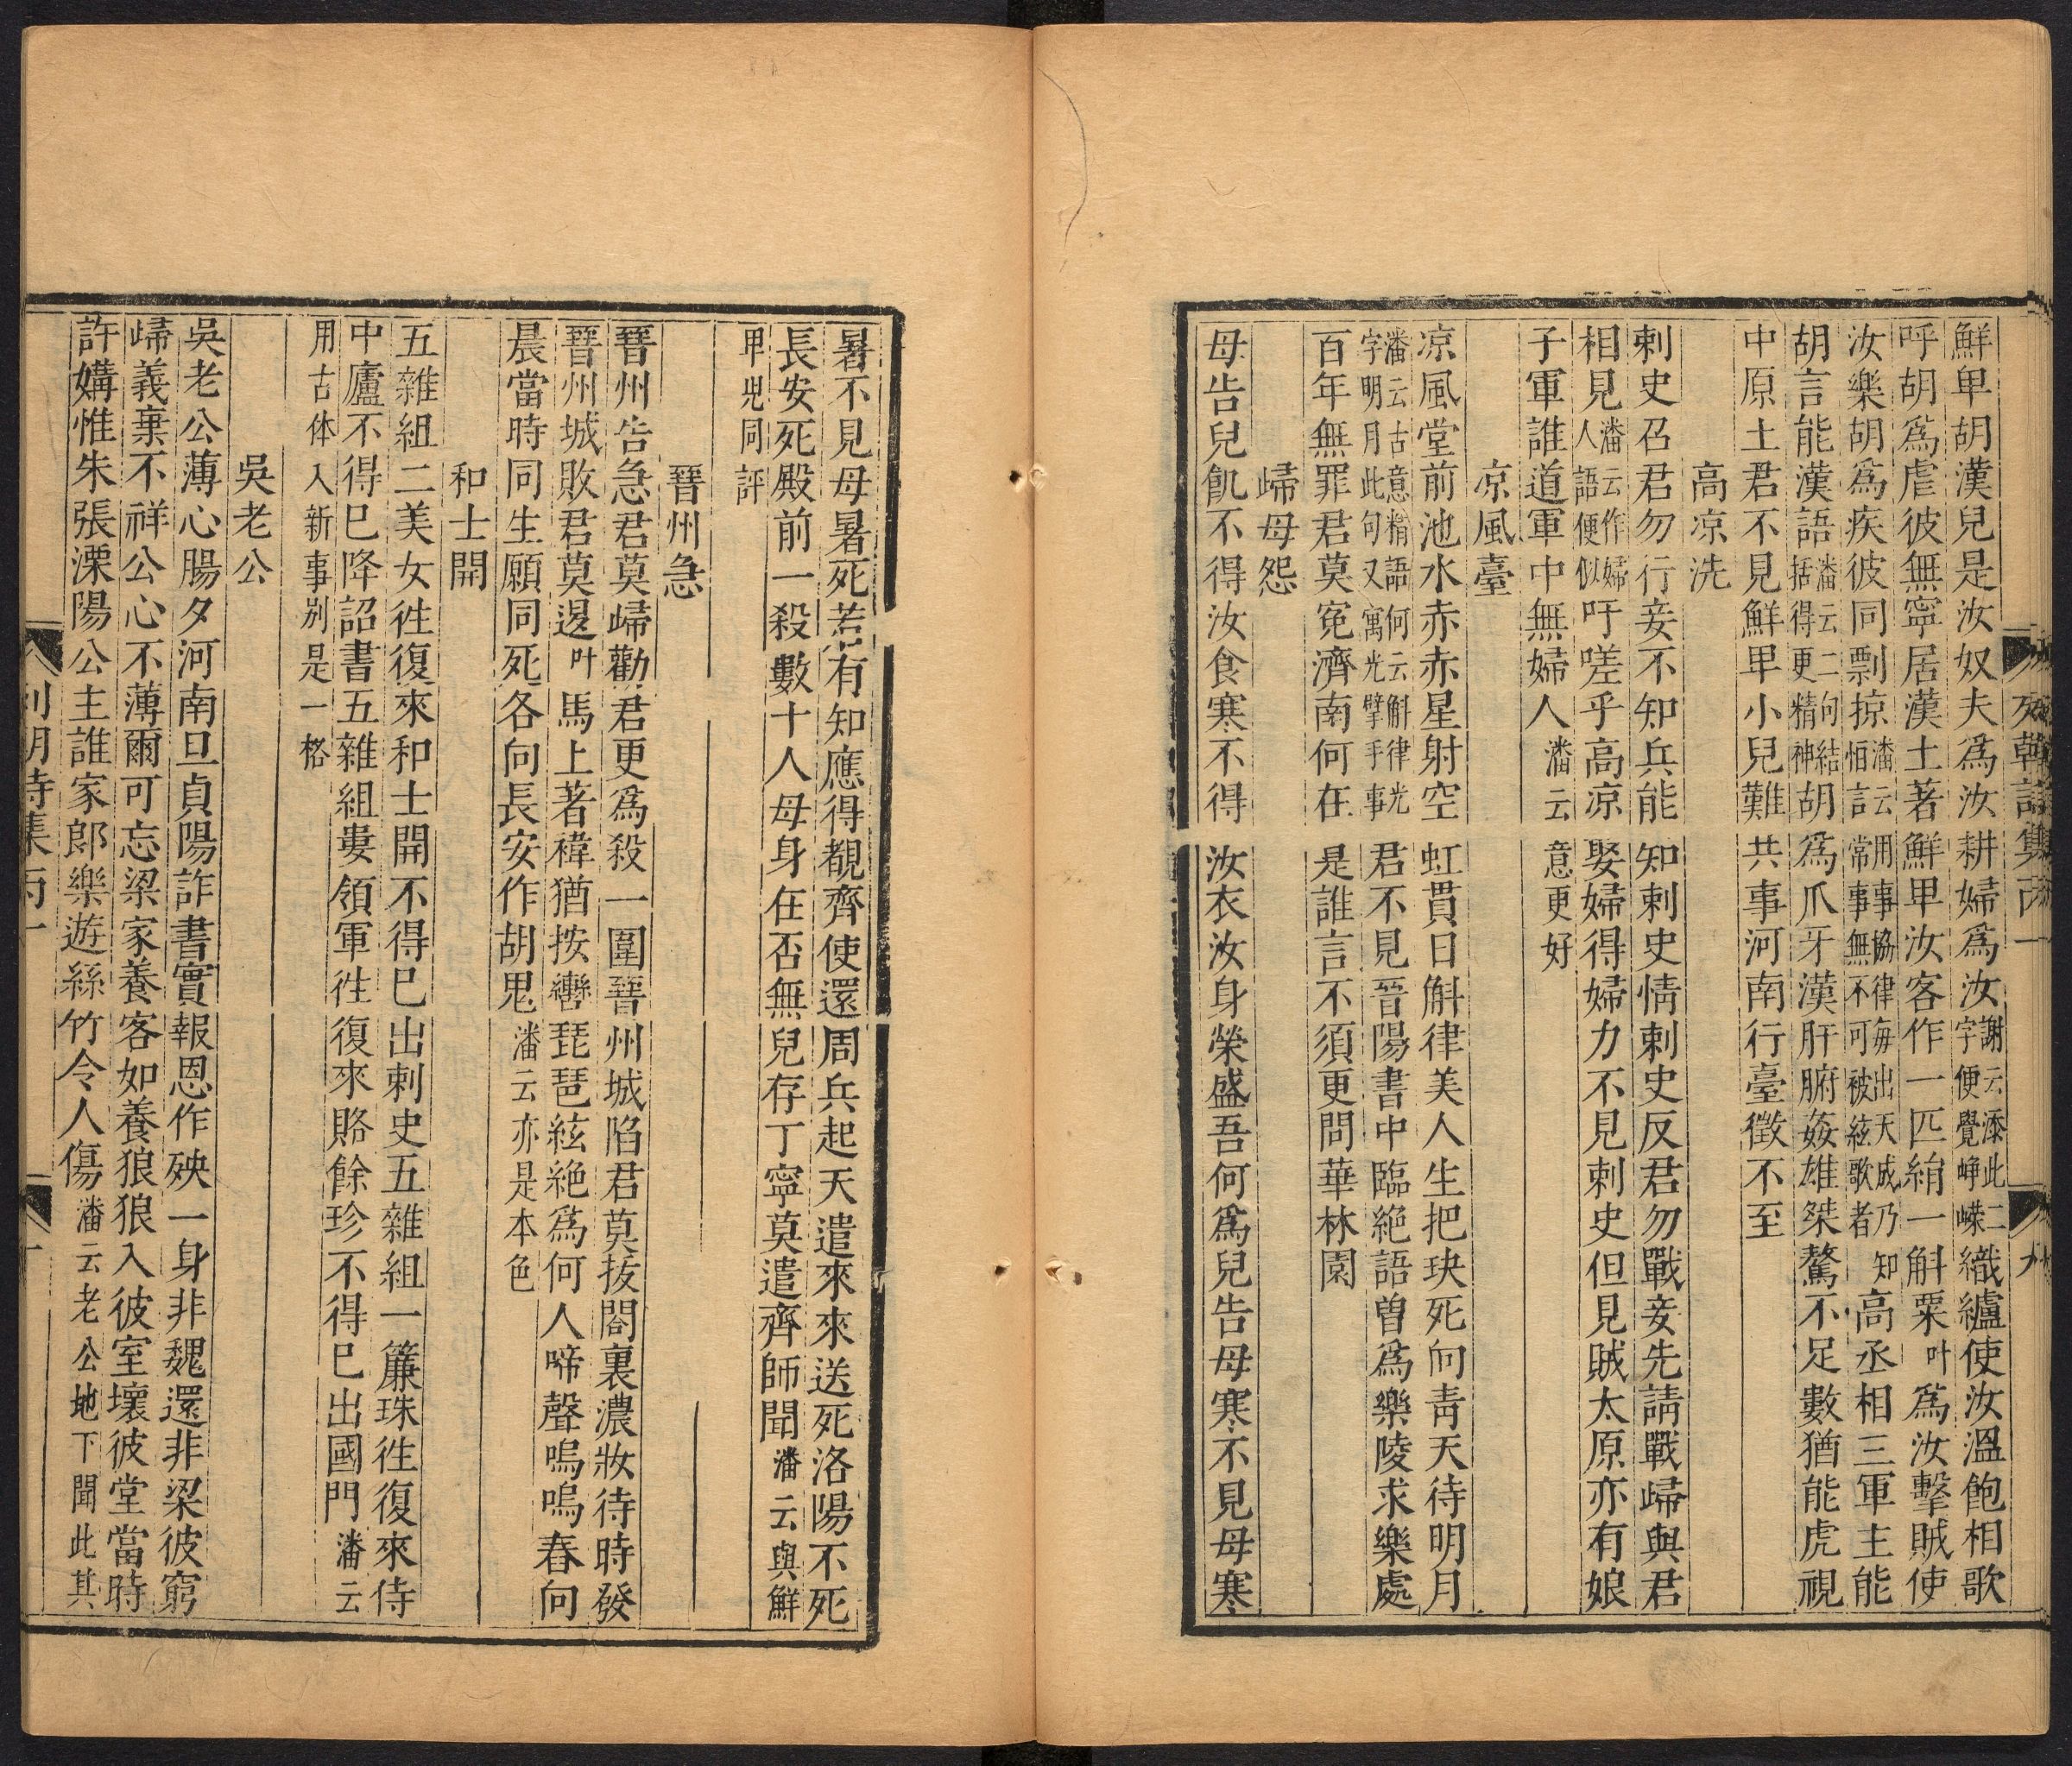 鮮卑胡漢兒是汝奴夫爲汝耕婦爲汝謝云添此二字便覺崢嶸織纑使汝溫飽相歌
呼胡爲虐彼無寧居漢土著鮮卑汝客作一匹絹一斛粟叶爲汝擊賊使
汝樂胡爲疾彼同剽掠潘云用事協律每出天成乃怕言常事無不可被絃歌者知高丞相三軍主能
胡言能漢語潘云二句結括得更精神胡爲爪牙漢肝腑姦雄桀驁不足數猶能虎視
中原土君不見鮮卑小兒難共事河南行臺徵不至
高凉洗
刺史召君君勿行妾不知兵能知刺史情刺史反君勿戰妾先請戰歸與君
相見潘云作婦人語便似吁嗟乎高凉娶婦得婦力不見刺史但見賊太原亦有娘
子軍誰道軍中無婦人潘云意更好
凉風臺
凉風堂前池水赤赤星射空虹貫日斛律美人生把玦死向靑天待明月
潘云古意精語何云斛律光字明月此句又寓光擘手事君不見晉陽書中臨絶語曾爲樂陵求樂處
百年無罪君莫寃濟南何在是誰言不須更問華林園
歸母怨
母告兒飢不得汝食寒不得汝衣汝身榮盛吾何爲兒告母寒不見母寒
死韓詩集丙一
九
暑不見母暑死若有知應得覩齊使還周兵起天遣來來送死洛陽不死
長安死殿前一殺數十人母身在否無兒存丁寧莫遣齊師聞潘云與鮮
甲兕同評
晉州急
晉州告急君莫歸勸君更爲殺一圍晉州城陷君莫拔閤裏濃妝待時發
晉州城敗君莫遑叶馬上著褘猶按轡琵琶絃絶爲何人啼聲嗚嗚春向
晨當時同生願同死各向長安作胡鬼潘云亦是本色
和士開
五雜組二美女徃復來和士開不得已出刺史五雜組一簾珠徃復來侍
中廬不得已降詔書五雜組婁領軍徃復來賂餘珍不得已出國門潘云
用古体入新事别是一格
吳老公
吳老公薄心腸夕河南旦貞陽詐書實報恩作殃一身非魏還非梁彼窮
歸義棄不祥公心不薄爾可忘梁家養客如養狼狼入彼室壞彼堂當時
許媾惟朱張溧陽公主誰家郎樂遊絲竹令人傷潘云老公地下聞此其
列朝詩集丙一